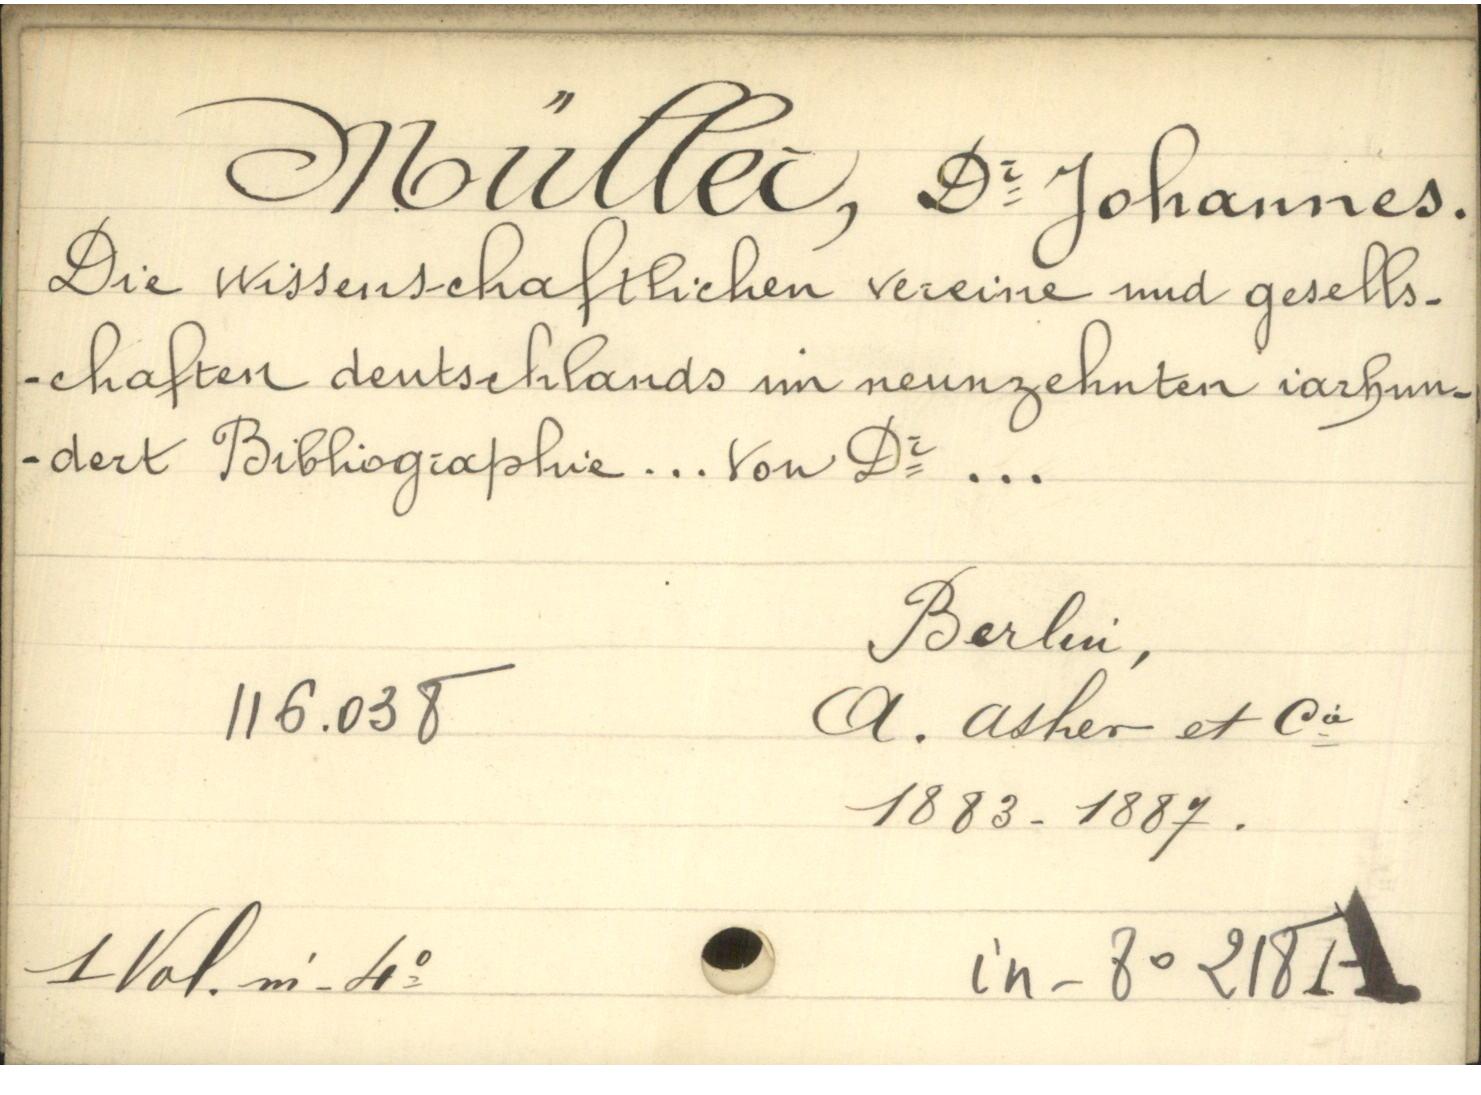 Müller, Dr Johannes.
Die wissenschaftlichen vereine und gesells-
-chaften deutschlands im neunzehnten iarhun-
-dert Bibliographie ... Von Dr ...
Berlin,
116.038
A. Asher et Cie
1883-1887.
1 Vol. in-4°
in-8° 218 A